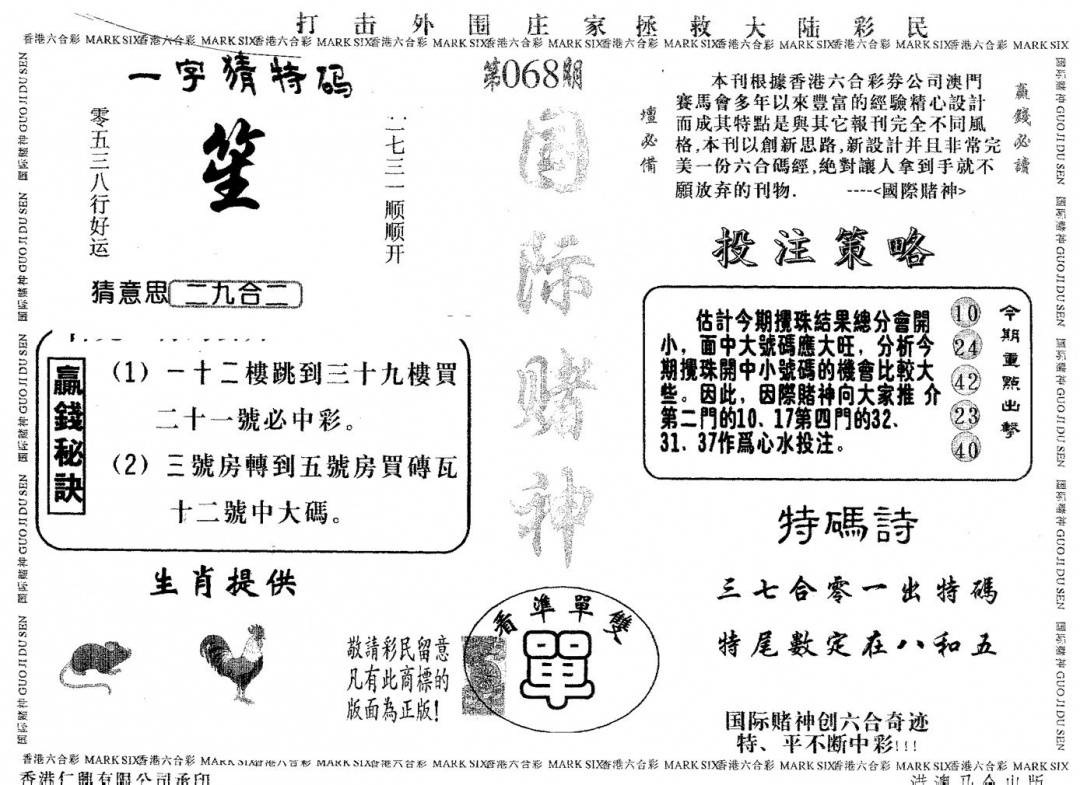 打击外围庄家拯救大陆彩民
香港六合彩 MARK SIX香港六合彩 MARK SIX香港六合彩 MARK SIX香港六合彩 MARK SIX香港六合彩 MARK SIX香港六合彩 MARK SIX香港六合彩 MARK SIX香港六合彩 MARK SIX香港六合彩 MARK SIX
国际赌神 GUO JI DU SEN 国际赌神 GUO JI DU SEN 国际赌神 GUO JI DU SEN 国际赌神 GUO JI DU SEN 国际赌神 GUO JI DU SEN
一字猜特码
零五三八行好运
笙
二七三一顺顺开
猜意思 二九合二
赢錢秘訣
(1) 一十二樓跳到三十九樓買
二十一號必中彩。
(2) 三號房轉到五號房買磚瓦
十二號中大碼。
生肖提供
敬請彩民留意
凡有此商標的
版面為正版!
第068期
国际赌神
看準單雙
單
壇必備
本刊根據香港六合彩券公司澳門
賽馬會多年以來豐富的經驗精心設計
而成其特點是與其它報刊完全不同風
格,本刊以創新思路,新設計并且非常完
美一份六合碼經,絶對讓人拿到手就不
願放弃的刊物. ----<國際賭神>
贏錢必讀
投注策略
估計今期攪珠結果總分會開
小，面中大號碼應大旺，分析今
期攪珠開中小號碼的機會比較大
些。因此，因際賭神向大家推 介
第二門的10、17第四門的32、
31、37作爲心水投注。
10
24
42
23
40
今期重點出擊
特碼詩
三七合零一出特碼
特尾數定在八和五
国际赌神创六合奇迹
特、平不断中彩!!!
国际赌神 GUO JI DU SEN 国际赌神 GUO JI DU SEN 国际赌神 GUO JI DU SEN 国际赌神 GUO JI DU SEN 国际赌神 GUO JI DU SEN
香港六合彩 MARK SIX香港六合彩 MARK SIX香港六合彩 MARK SIX香港六合彩 MARK SIX香港六合彩 MARK SIX香港六合彩 MARK SIX香港六合彩 MARK SIX香港六合彩 MARK SIX香港六合彩 MARK SIX
香港仁興有限公司承印